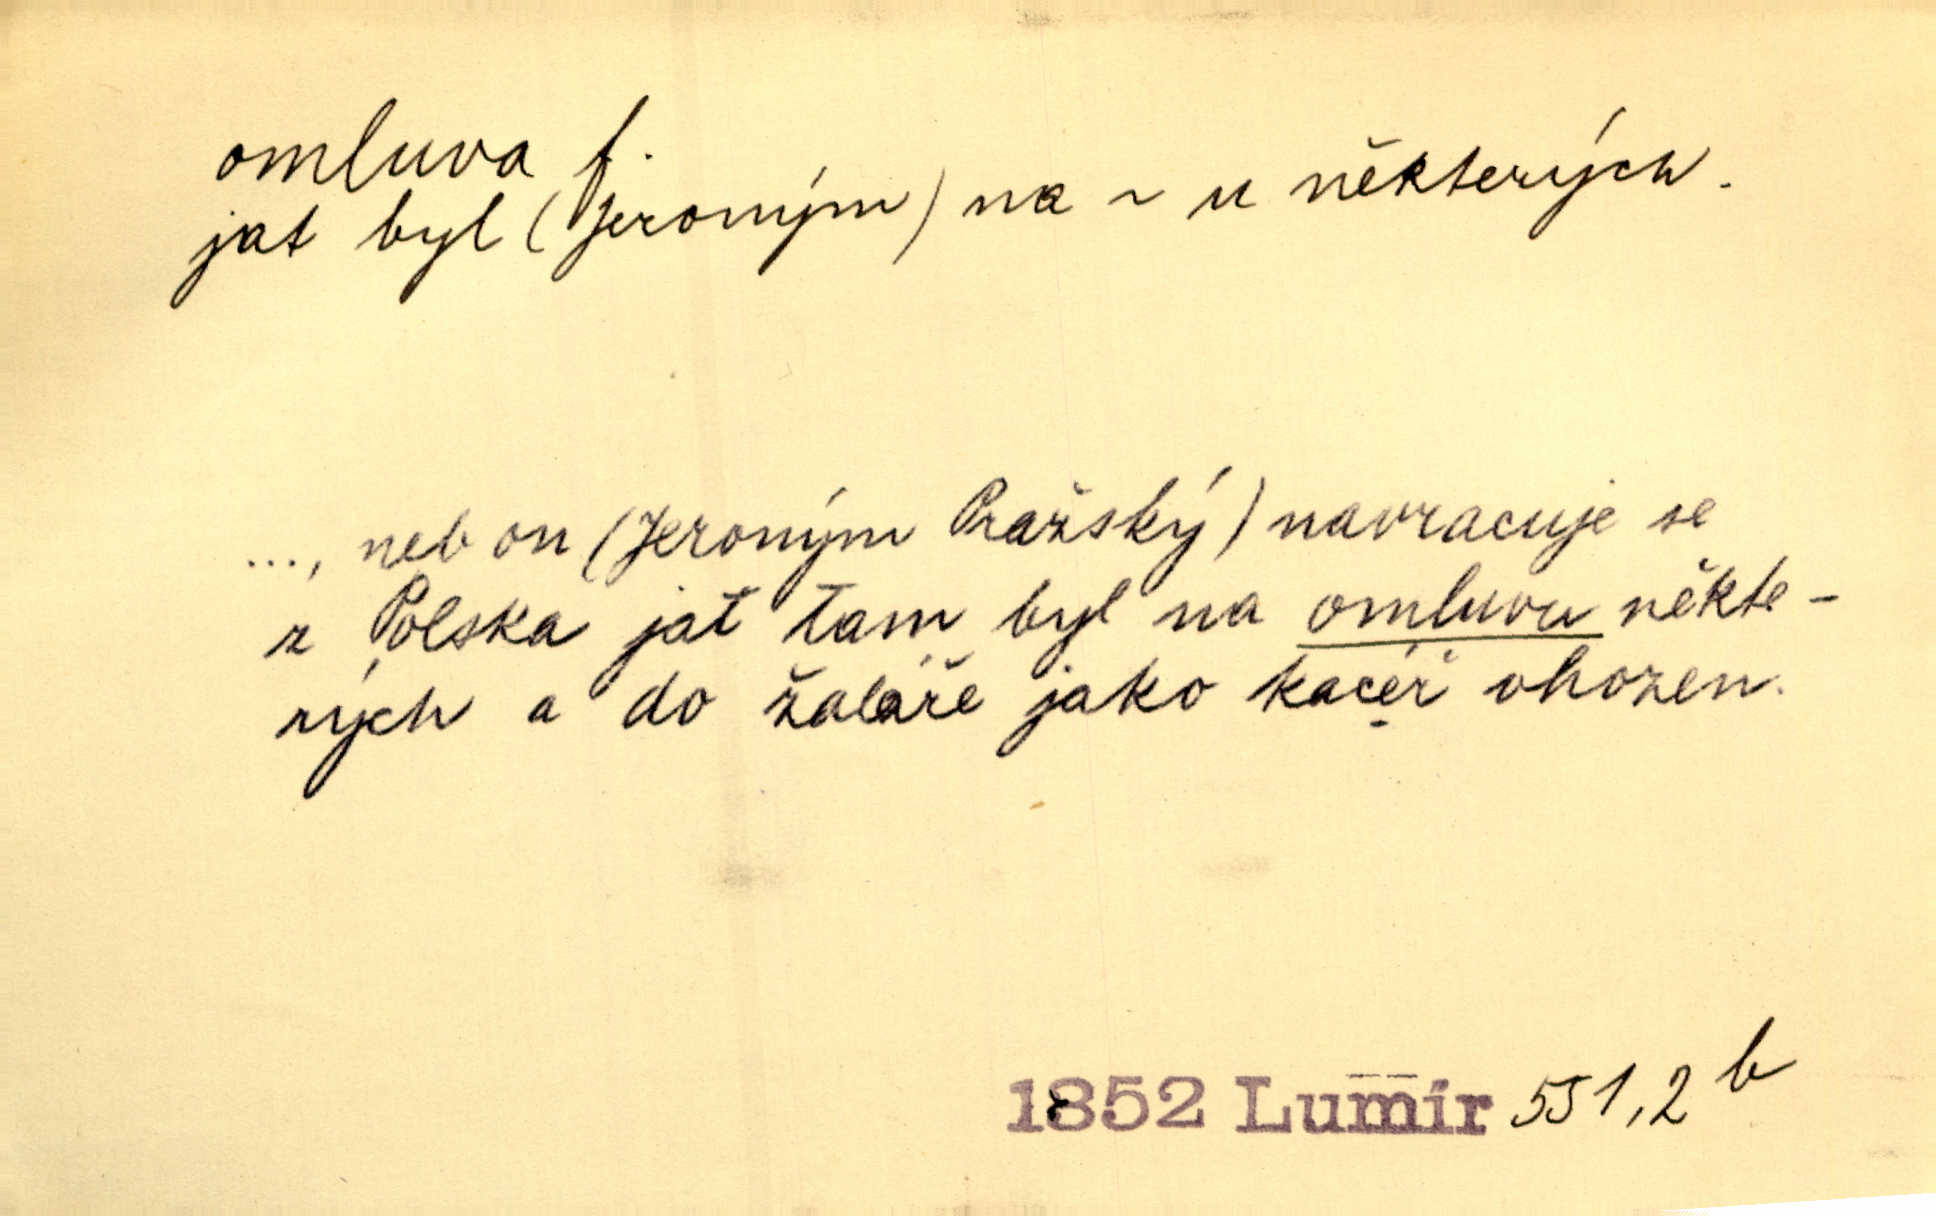 omluva f.
jat byl (Jeroným) na ~ u některých.
..., neb on (Jeroným Pražský) navracuje se
z Polska jat tam byl na omluvu někte-
rých a do žaláře jako kacéř vhozen.
1852 Lumír 551,2 b